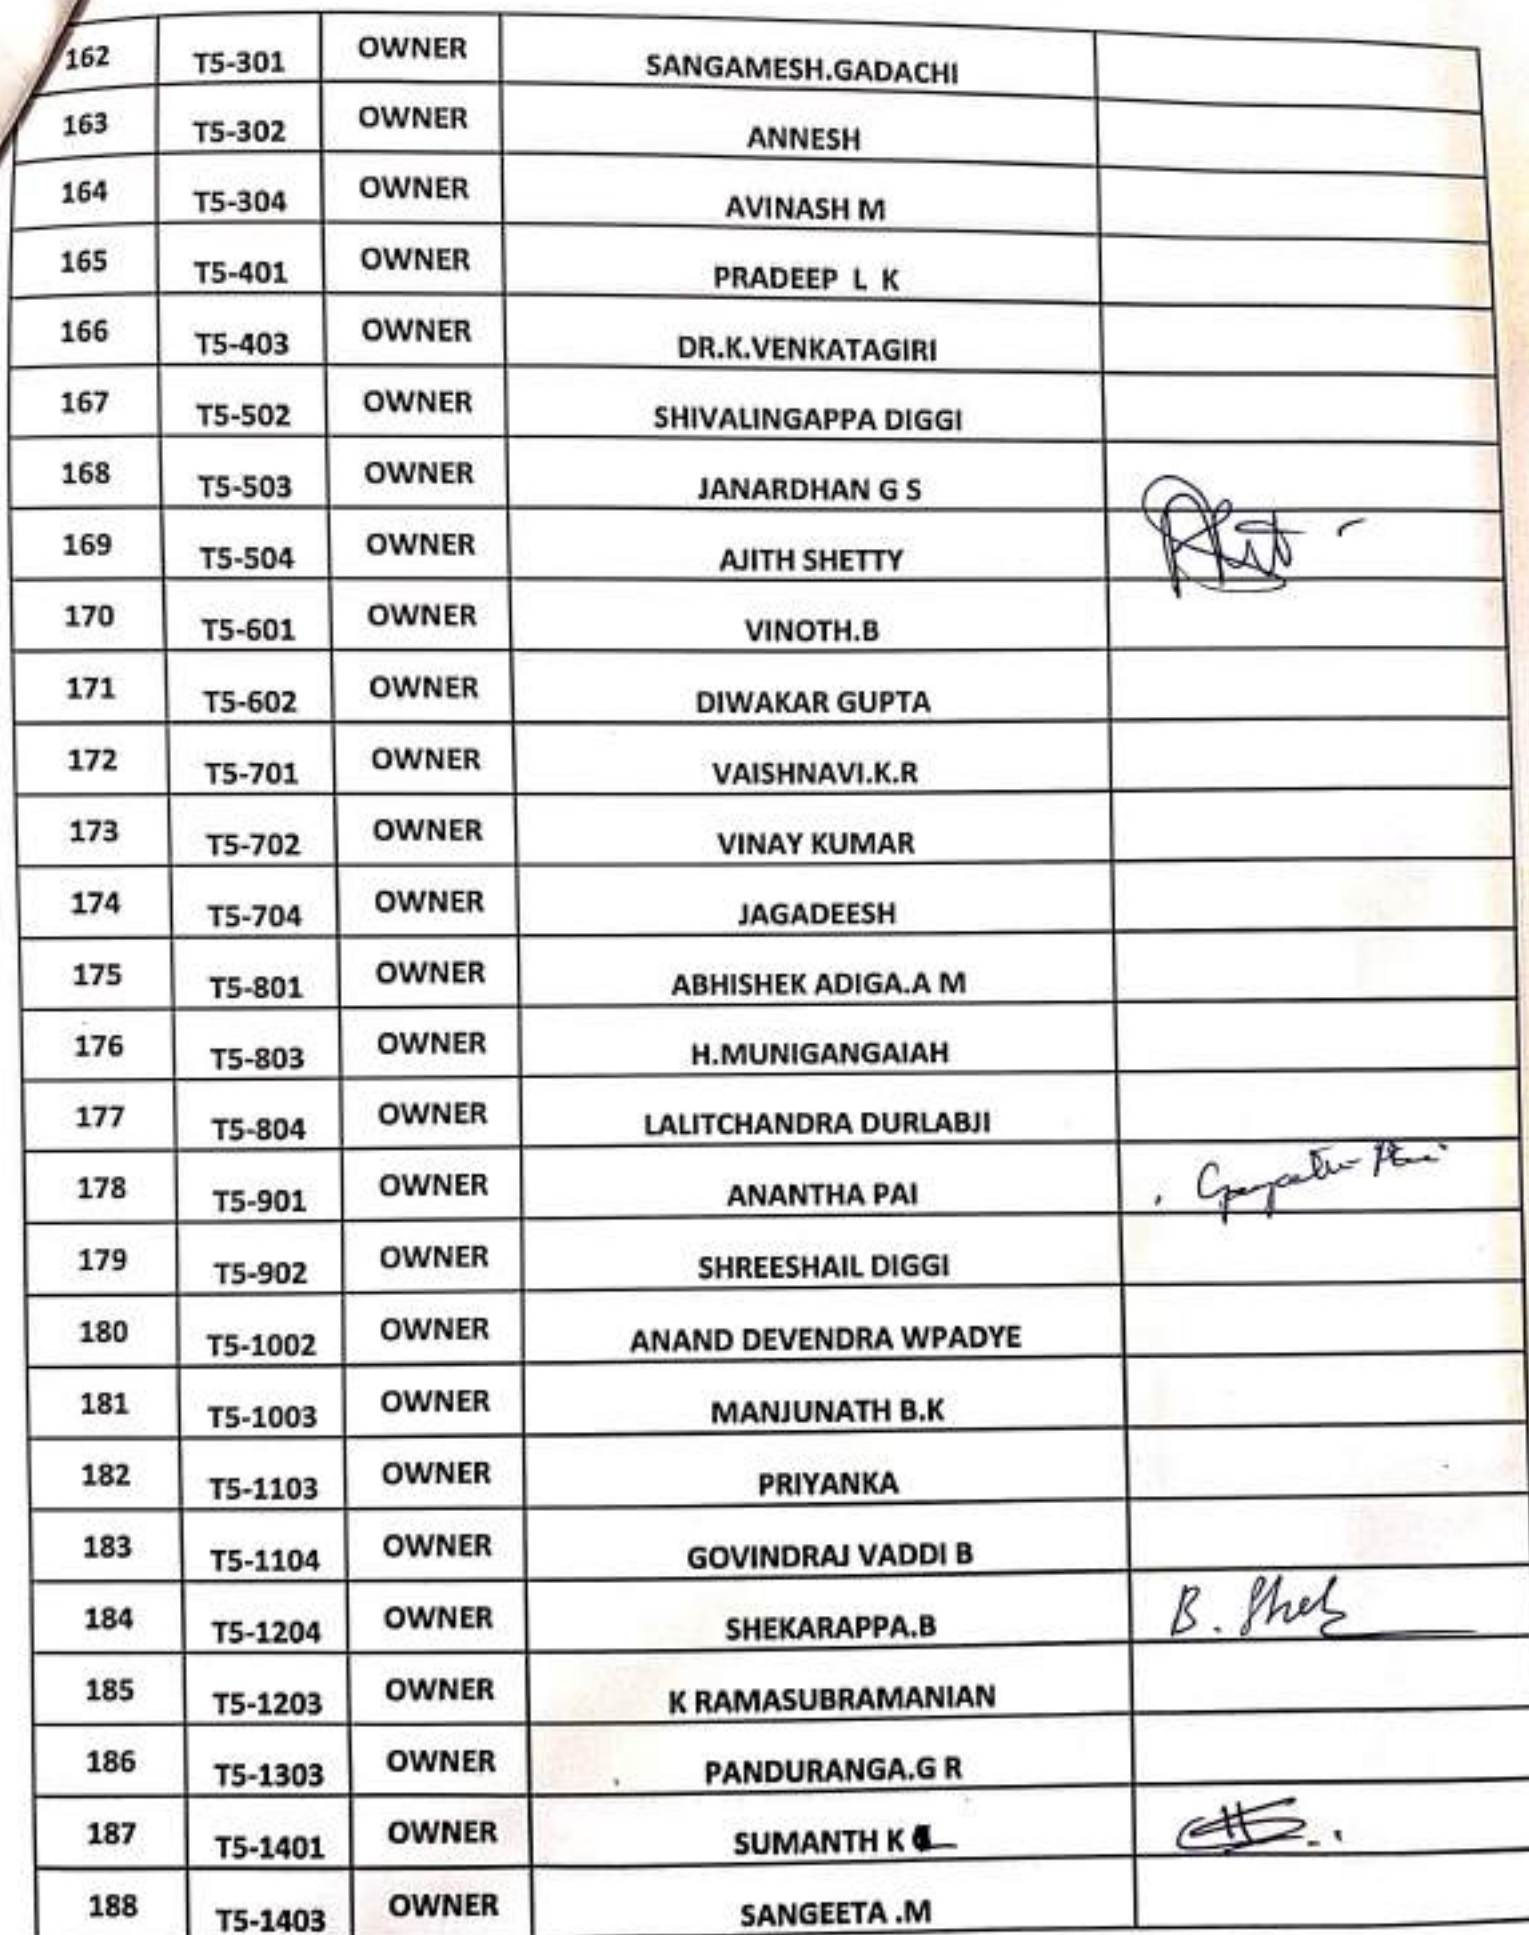 162 T5-301 OWNER SANGAMESH.GADACHI
163 T5-302 OWNER ANNESH
164 T5-304 OWNER AVINASH M
165 T5-401 OWNER PRADEEP L K
166 T5-403 OWNER DR.K.VENKATAGIRI
167 T5-502 OWNER SHIVALINGAPPA DIGGI
168 T5-503 OWNER JANARDHAN G S
169 T5-504 OWNER AJITH SHETTY
170 T5-601 OWNER VINOTH.B
171 T5-602 OWNER DIWAKAR GUPTA
172 T5-701 OWNER VAISHNAVI.K.R
173 T5-702 OWNER VINAY KUMAR
174 T5-704 OWNER JAGADEESH
175 T5-801 OWNER ABHISHEK ADIGA.A M
176 T5-803 OWNER H.MUNIGANGAIAH
177 T5-804 OWNER LALITCHANDRA DURLABJI
178 T5-901 OWNER ANANTHA PAI
179 T5-902 OWNER SHREESHAIL DIGGI
180 T5-1002 OWNER ANAND DEVENDRA WPADYE
181 T5-1003 OWNER MANJUNATH B.K
182 T5-1103 OWNER PRIYANKA
183 T5-1104 OWNER GOVINDRAJ VADDI B
184 T5-1204 OWNER SHEKARAPPA.B B.
185 T5-1203 OWNER K RAMASUBRAMANIAN
186 T5-1303 OWNER PANDURANGA.G R
187 T5-1401 OWNER SUMANTH K
188 T5-1403 OWNER SANGEETA .M